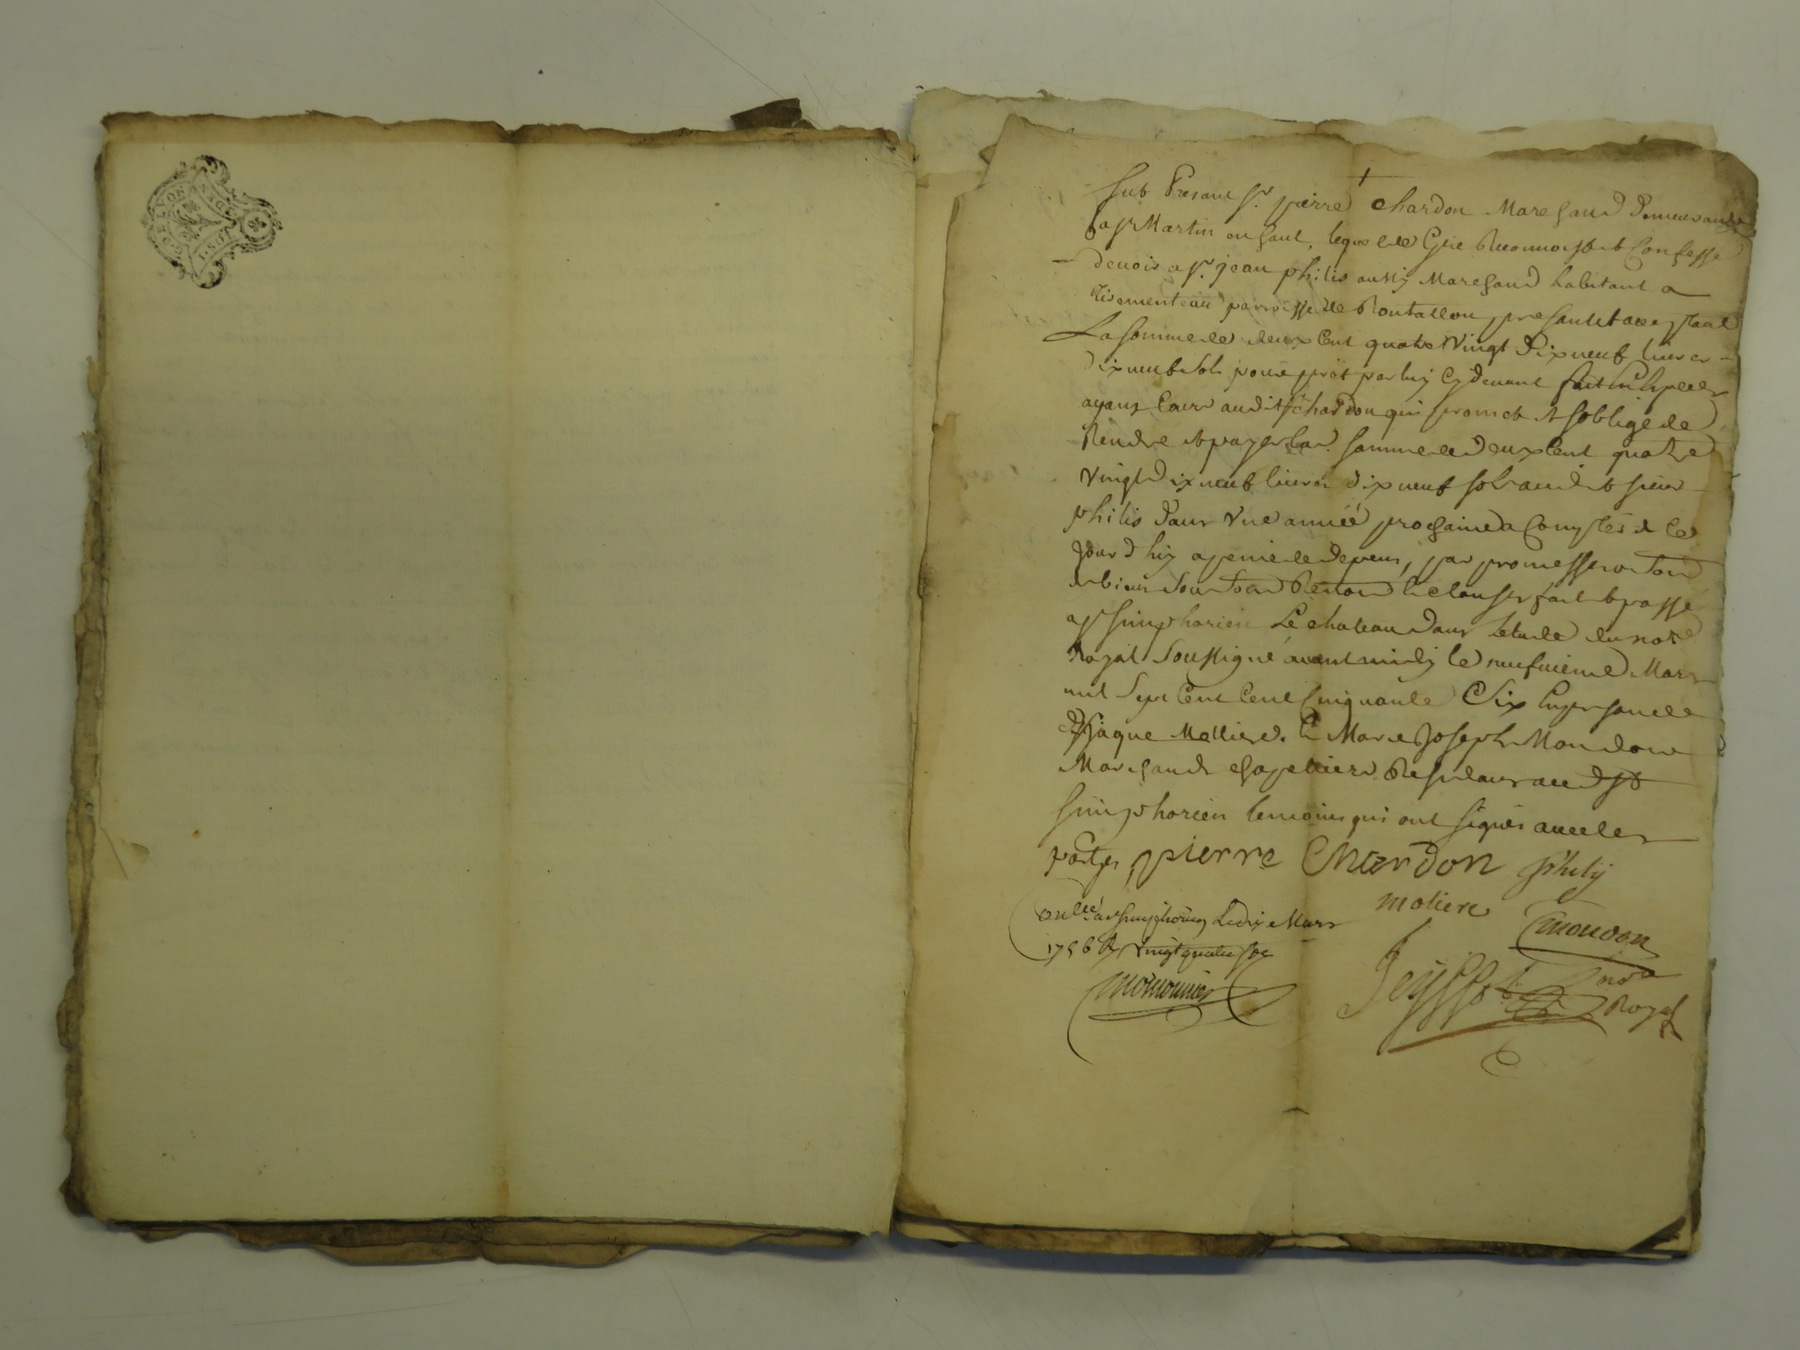 GN. DE LYON
fut Presant sr. pierre chardon Marchand demeurant
a st Martin en haut, lequel de gré Reconnoist et Confesse
devoir a sr. jean philis aussy Marchand habitant a
paroisse de Rontallon, presant et acceptant
La somme de deux Cent quatre Vingt dix neuf livres
dix neuf sols pour prêt par luy cy devant fait
audit sr chardon qui promet et soblige de
Rendre et payer lad. somme de deux Cent quatre
Vingt dix neuf livres dix neuf sols audit sieur
philis dans Une année prochaine a Compter de Ce
jourd'huy a peine de depens, par promesse
de biens clauses fait et passé
a st simphorien Le chateau dans letude du notre
Royal soussigné avant midy le neufvieme Mars
mil sept Cent Cent Cinquante Six En presance de
jaque Mollierd. et Marc Joseph Mondon
Marchands chapelliers Residans aud st
simphorien temoins qui ont signés avec les
partyes, pierre Chardon philij
moliere
mondon
Con.lé a st simphorien Le dix Mars
1756 R. vingt quatre sols
Not.re
Royal